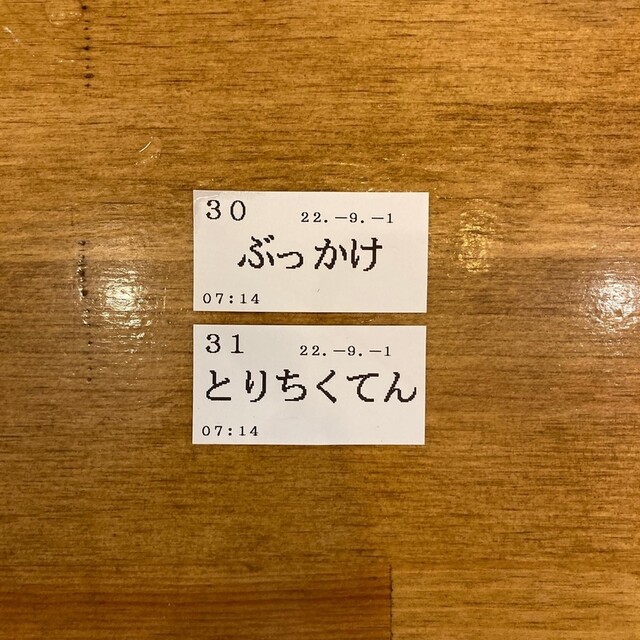 30
22.-9.-1
ぶっかけ
07:14
31
22.-9.-1
とりちくてん
07:14